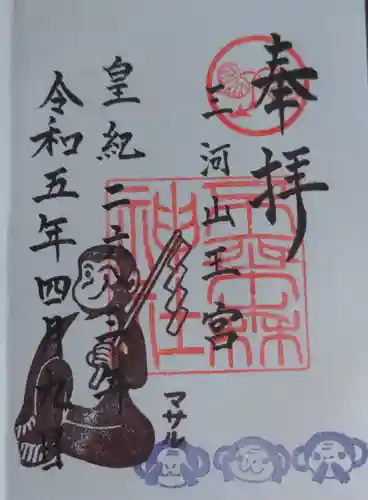 奉拝
三河山王宮
皇紀二六八三年
令和五年四月九日
マサル